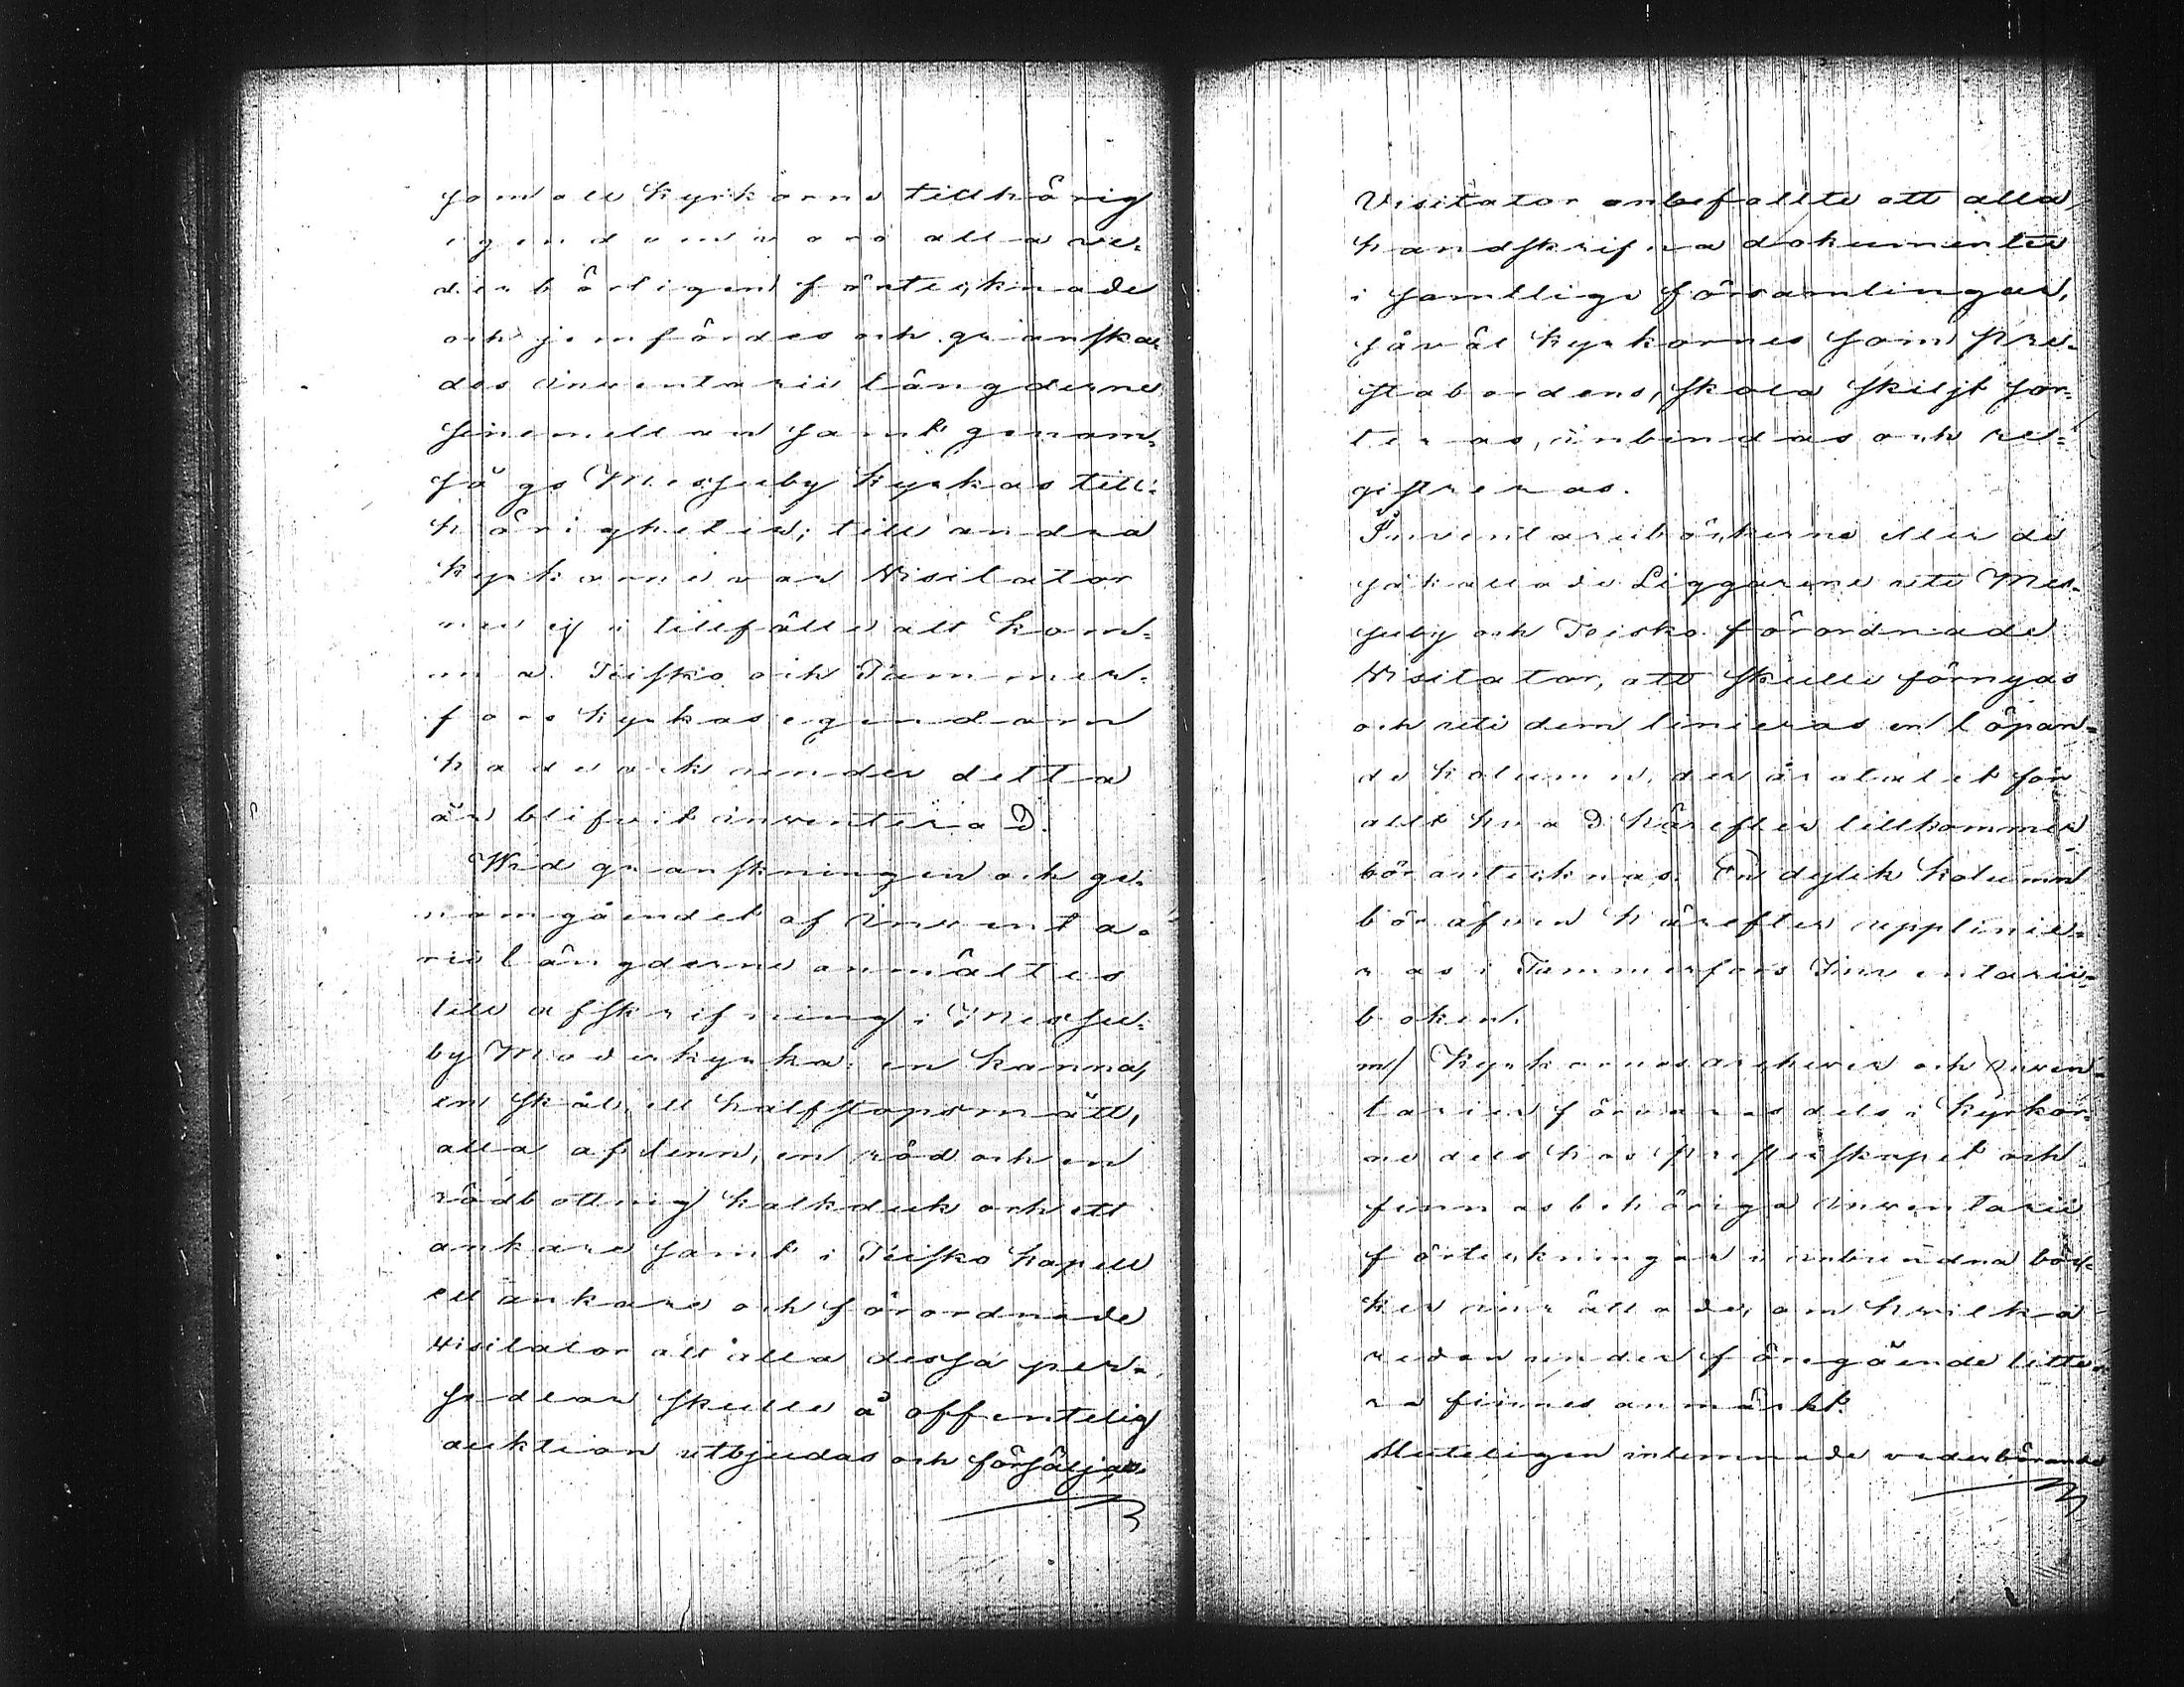 som all kyrkorne tillhörig
egendom voro alla ve-
derbörligen förtecknade
och jemfördes och granska-
des inventarii längderne
sinemellan samt genom-
sågs Messuby kyrkas till-
hörigheter; till andra
kyrkorne var Visitator
nu ej i tillfälle att kom-
ma. Teisko och Tammer-
fors kyrkas egendom
hade ock under detta
år blifvit inventerad.
Wid granskningen och ge-
nomgåendet af inventa-
rii längderne anmältes
till afskrifning i Messu-
by Moderkyrka: en kanna,
en skål, ett halfstopsmått,
alla af tenn, en röd och en
rödbottnig kalkduk och ett
ankare samt i Teisko kapell
ett ankare och förordnade
Visitator att alla dessa per-
sedlar skulle å offentelig
auktion utbjudas och försäljas.
Visitator anbefallte att alla
handskrifna dokumenter
i samtlige församlingar,
såväl kyrkornes som pre-
stabordens, skola skiljt sor-
teras, inbindas och re-
gistreras.
Inventariiböckerne eller de
så kallade Liggarene uti Mes-
suby och Teisko förordnade
Visitator, att skulle förnyas
och uti dem linieras en löpan-
de kolumn, der årstalet för
allt hvad härefter tillkommer
bör antecknas. En dylik kolumn
bör äfven härefter upplinie-
ras i Tammerfors Inventarii-
boken.
m/ Kyrkornas archiver och inven-
tarier förvaras dels i kyrkor-
ne dels hos presterskapet och
finnas behöriga inventarii
förteckningar i inbundna böc-
ker inrättade, om hvilka
redan under föregående litte-
ra finnes anmärkt.
Sluteligen intemnade vederbörande